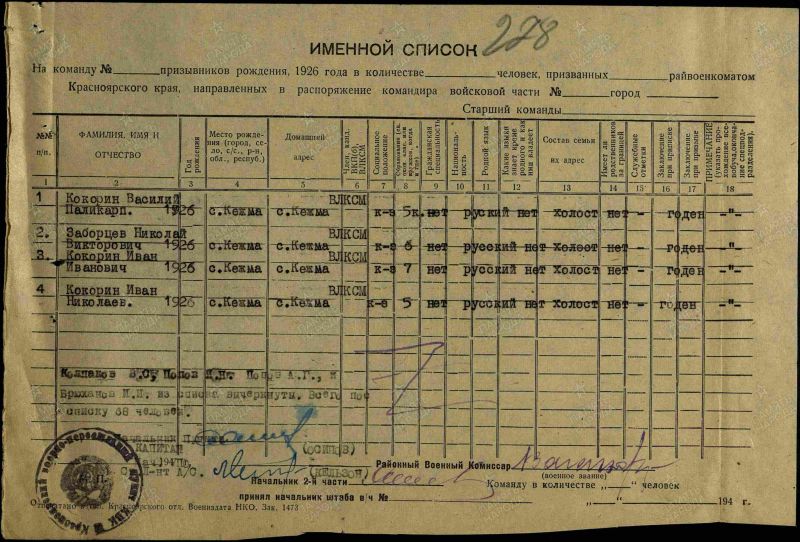 ИМЕННОЙ СПИСОК 228
На команду № призывников рождения, 1926 года в количестве человек, призванных райвоенкоматом
Красноярского края, направленных в распоряжение командира войсковой части № город
Старший команды
№№ п/п. ФАМИЛИЯ, ИМЯ И ОТЧЕСТВО Год рождения Место рождения (город, село, с/с., р-н, обл., респуб.) Домашний адрес Член, канд. ВКП(б), ВЛКСМ Социальное положение Гражданская специальность Националь-ность Родной язык Какие языки знает кроме родного и какими владеет Состав семьи их адрес Имеет ли родственников за границей Служебные отметки Заключение при приписке Заключение при призыве ПРИМЕЧАНИЕ
1 2 3 4 5 6 7 8 9 10 11 12 13 14 15 16 17 18
1 Кокорин Василий ВЛКСМ
Паликарп. 1926 с.Кежма с.Кежма к-з 5к. нет руский нет Холост нет - годен -"-
2. Заборцев Николай ВЛКСМ
Викторович 1926 с.Кежма с.Кежма к-з 6 нет русский нет Холост нет - годен -"-
3. Кокорин Иван ВЛКСМ
Иванович 1926 с.Кежма с.Кежма к-з 7 нет русский нет Холост нет - годен -"-
4 Кокорин Иван ВЛКСМ
Николаев. 1926 с.Кежма с.Кежма к-з 5 нет русский нет Холост нет - годен -"-
Колпаков В.С, Попов Попов А.Г., и
Брюханов из списка вычеркнуты. Всего пос
списку 68 человек.
Начальник
КАПИТАН (ОСИПОВ)
Районный Военный Комиссар
(военное звание)
А/С. (КЕЛЬЗОН)
Начальник 2-й части Команду в количестве „ “ человек
принял начальник штаба в/ч № „ “ 194 г.
отл. Воениздата НКО, Зак. 1473